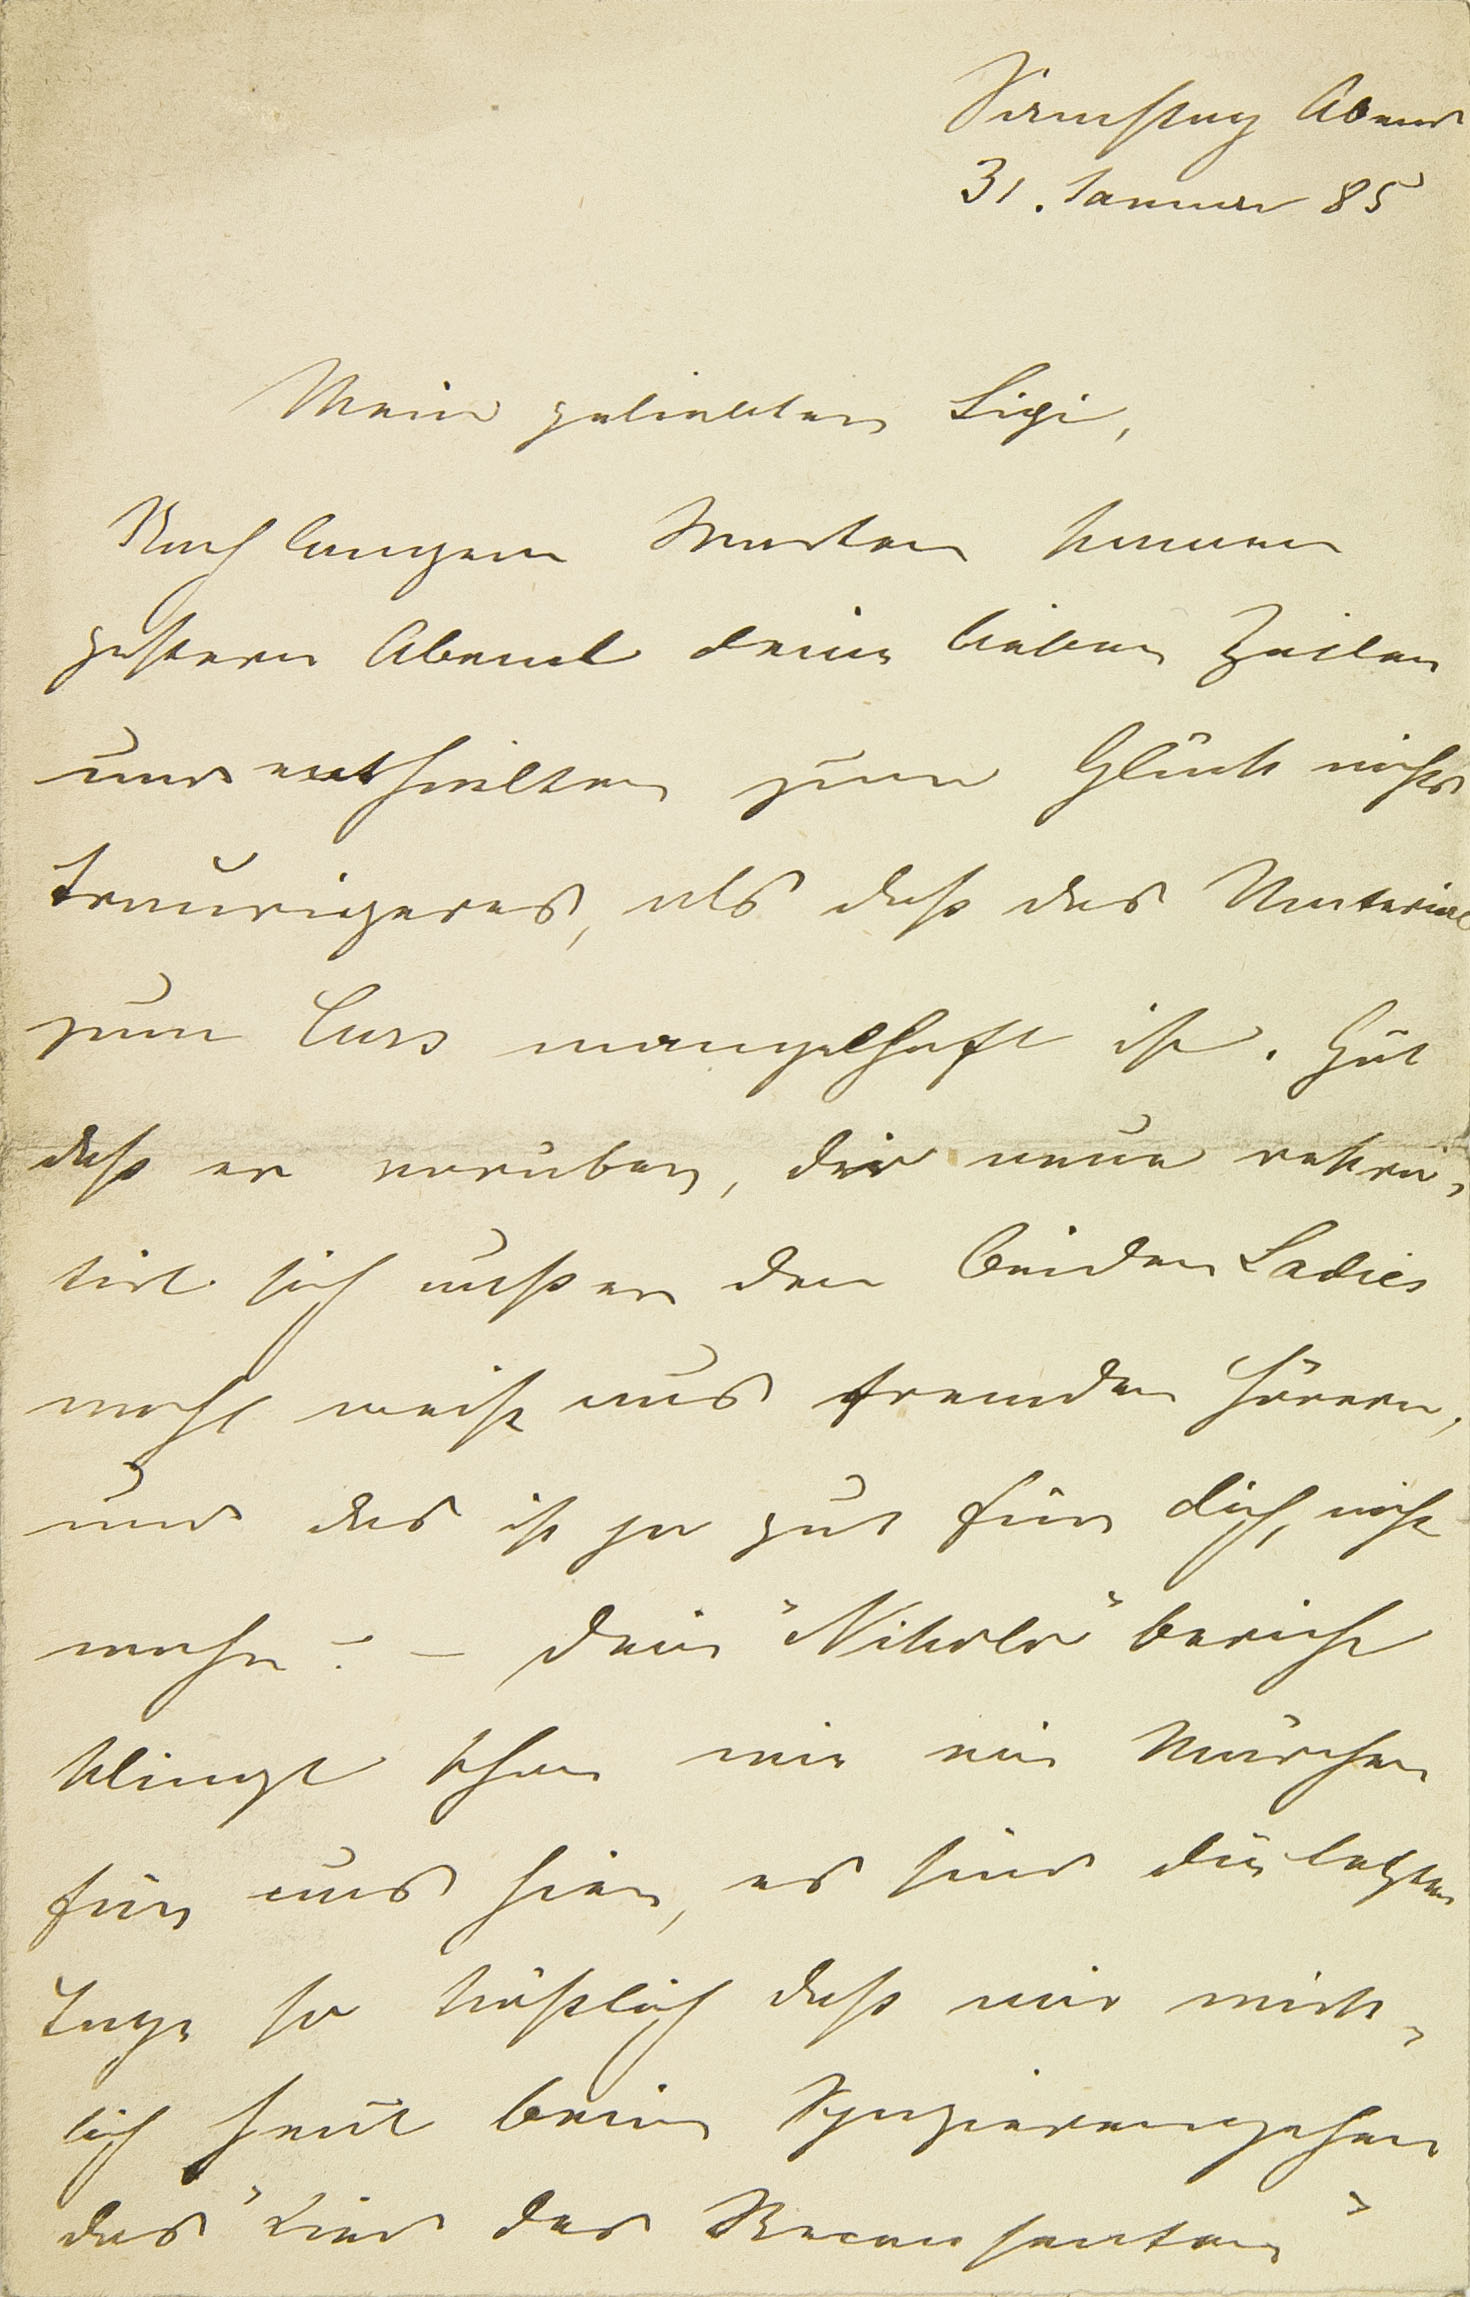 Samstag Abend
31. Januar 85
Mein geliebter Sigi,
Nach langem Warten kamen
gestern Abend deine lieben Zeilen
und enthielten zum Glück nichts
traurigeres, als daß das Material
zum Curs mangelhaft ist. Gut
daß er vorüber, der neue rekru-
tirt sich außer den beiden Ladies
wohl meist aus fremden Hörern,
und das ist ja gut für dich, nicht
wahr? – Dein "Nikolo" bericht
klingt schon wie ein Märchen
für uns hier, es sind die letzten
Tage so köstlich daß mir wirk-
lich heut beim Spazierengehen
das "Lied des Recensenten"